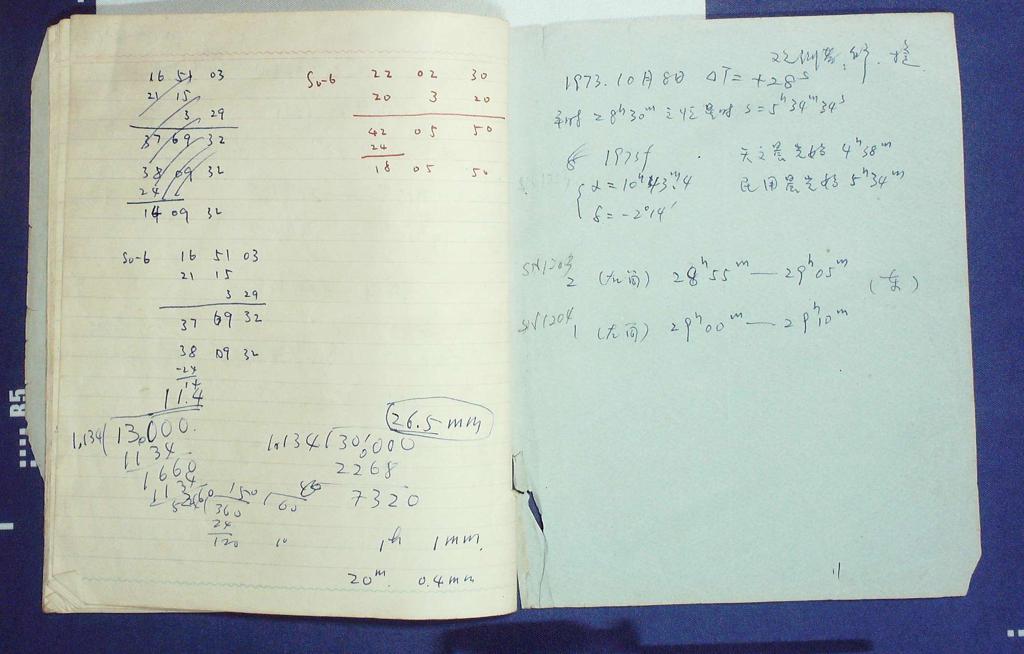 16 51 03
21 15
3 29
37 69 32
38 09 32
24
14 09 32
S₀-6 22 02 30
20 3 20
42 05 50
24
18 05 50
S₀-6 16 51 03
21 15
3 29
37 69 32
38 09 32
-24
14
11.4
1.134 13.000.
1134
1660
1134
26.5 mm
1.134 30.000
2268
7320
150
360
24
120
60
10
1ʰ 1mm.
20ᵐ. 0.4mm
1973.10月8日 ΔT = +28ˢ
28ʰ30ᵐ S=5ʰ34ᵐ34ˢ
1973f
天文晨光始 4ʰ38ᵐ
α=10ʰ43ᵐ.4
民用晨光始 5ʰ34ᵐ
δ=-2°14′
2 (右面) 28ʰ55ᵐ — 29ʰ05ᵐ
(东)
SN1204
1 (左面) 29ʰ00ᵐ — 29ʰ10ᵐ
11
R5